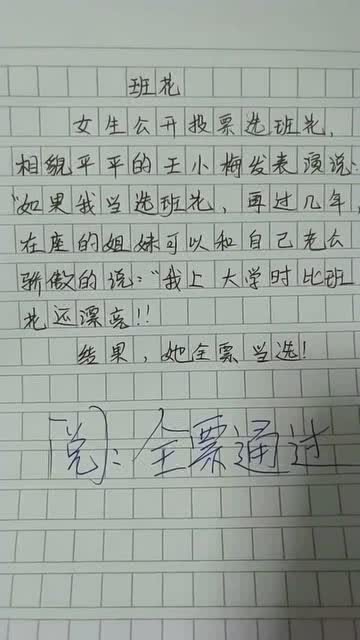 班花
女生公开投票选班花,
相貌平平的王小梅发表演说:
"如果我当选班花,再过几年,
在座的姐妹可以和自己老公
骄傲的说:"我上大学时比班
花还漂亮!!
结果,她全票当选!
阅:全票通过